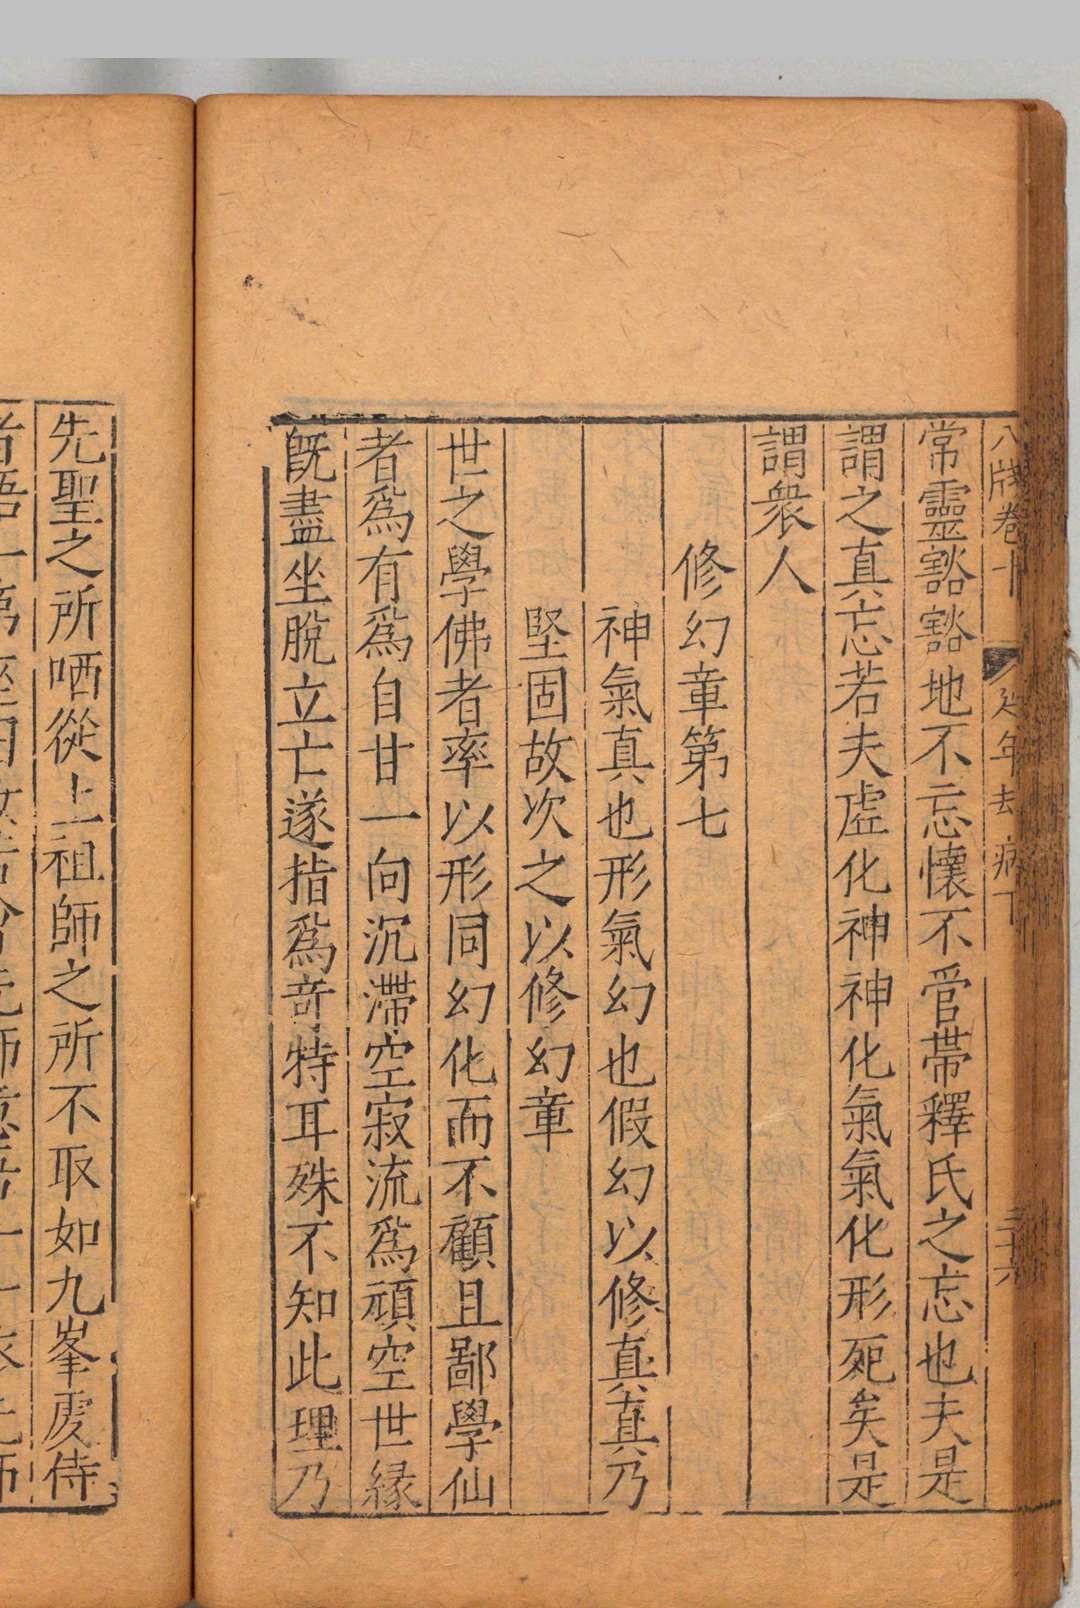 八牋卷十 延年去病下 三十六
常靈豁豁地不忘懷不管帶釋氏之忘也夫是
謂之真忘若夫虛化神神化氣氣化形死矣是
謂衆人
修幻章第七
神氣真也形氣幻也假幻以修真真乃
堅固故次之以修幻章
世之學佛者率以形同幻化而不顧且鄙學仙
者爲有爲自甘一向沉滯空寂流爲頑空世緣
旣盡坐脫立亡遂指爲竒特耳殊不知此理乃
先聖之所哂從上祖師之所不取如九峯䖍侍